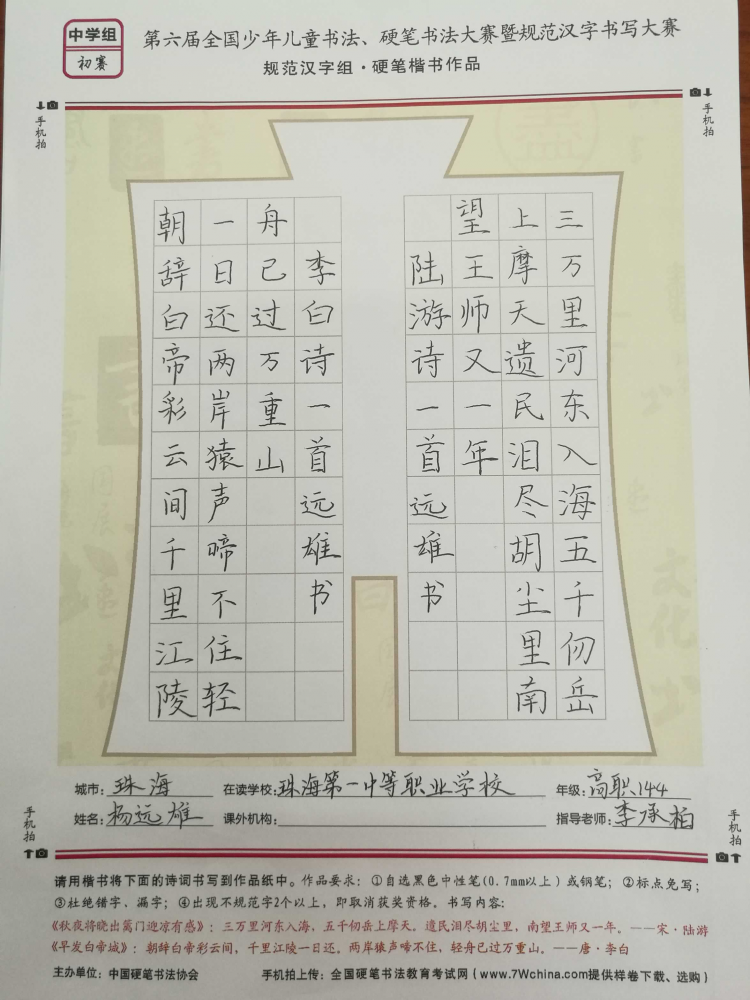 中学组
初赛
第六届全国少年儿童书法、硬笔书法大赛暨规范汉字书写大赛
规范汉字组·硬笔楷书作品
手机拍
手机拍
三万里河东入海五千仞岳
上摩天遗民泪尽胡尘里南
望王师又一年
陆游诗一首远雄书
李白诗一首远雄书
舟已过万重山
一日还两岸猿声啼不住轻
朝辞白帝彩云间千里江陵
城市：珠海 在读学校：珠海第一中等职业学校 年级：高职144
姓名：杨远雄 课外机构： 指导老师：李承柏
手机拍
手机拍
请用楷书将下面的诗词书写到作品纸中。作品要求：①自选黑色中性笔(0.7mm以上)或钢笔；②标点免写；
③杜绝错字、漏字；④出现不规范字2个以上，即取消获奖资格。书写内容：
《秋夜将晓出篱门迎凉有感》：三万里河东入海，五千仞岳上摩天。遗民泪尽胡尘里，南望王师又一年。——宋·陆游
《早发白帝城》：朝辞白帝彩云间，千里江陵一日还。两岸猿声啼不住，轻舟已过万重山。——唐·李白
主办单位：中国硬笔书法协会 手机拍上传：全国硬笔书法教育考试网(www.7Wchina.com提供样卷下载、选购)